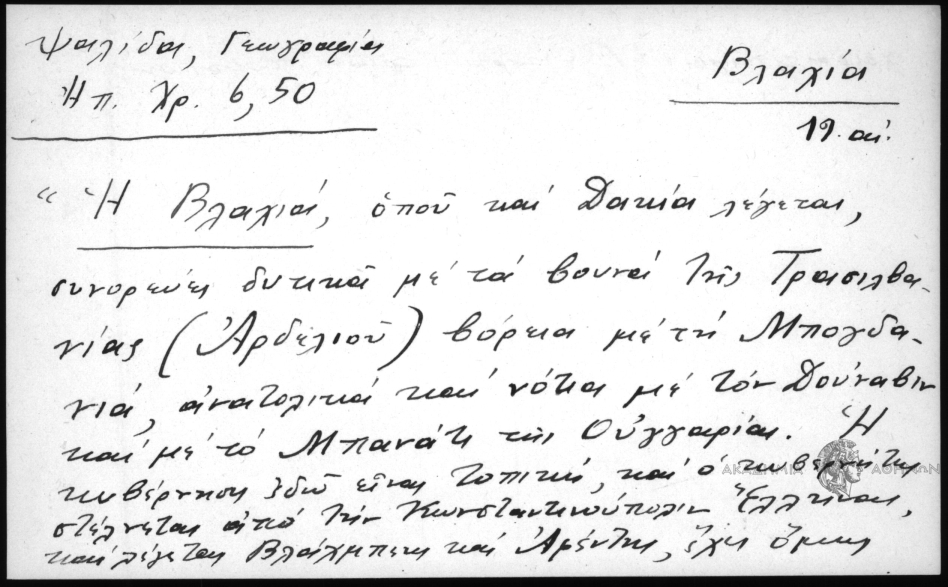 Ψαλίδα, Γεωγραφία
Ἠπ. Χρ. 6, 50
Βλαχία
19. αἰ.
“Ἡ Βλαχιά, ὁποῦ καί Δακία λέγεται,
συνορεύει δυτικά μέ τά βουνά τῆς Τρασιλβα-
νίας (Ἀρδελιοῦ) βόρεια μέ τή Μπογδα-
νιά, ἀνατολικά καί νότια μέ τόν Δούναβιν
καί μέ τό Μπανάτι τῆς Οὐγγαρίας. Ἡ
κυβέρνηση ἐδῶ εἶναι τοπική, καί ὁ κυβερνήτης
στέλνεται ἀπό τήν Κωνσταντινούπολιν Ἕλληνας,
καί λέγεται Βλάχμπεης καί Ἀφέντης, ἔχει ὅμως
ΑΚΑΔΗΜΙΑ ΑΘΗΝΩΝ